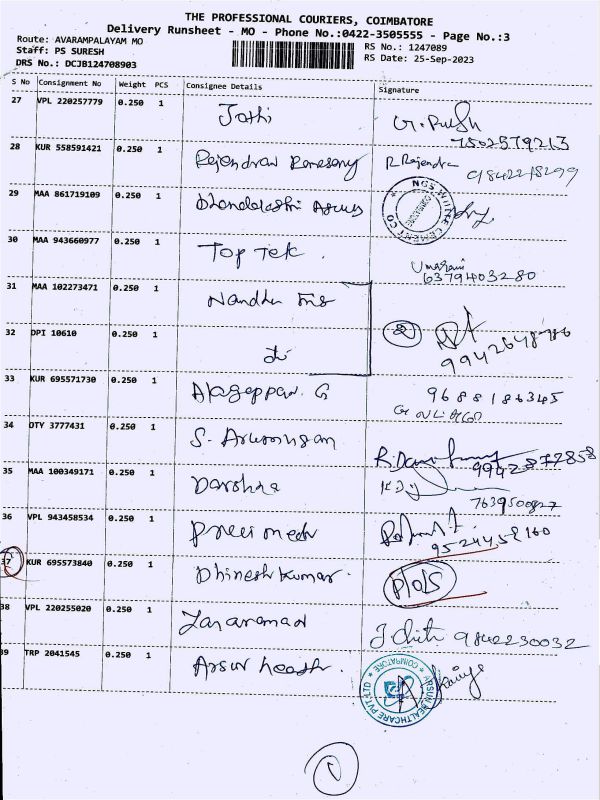 THE PROFESSIONAL COURIERS, COIMBATORE
Delivery Runsheet - MO - Phone No.:0422-3505555 - Page No.:3
Route: AVARAMPALAYAM MO
RS No.: 1247089
Staff: PS SURESH
RS Date: 25-Sep-2023
DRS No.: DCJB124708903
S No Consignment No Weight PCS Consignee Details Signature
27 VPL 220257779 0.250 1 Jothi
7502579213
28 KUR 558591421 0.250 1 Rajendran R. Rajendra
9842218299
29 MAA 861719109 0.250 1 Dhanalakshmi
30 MAA 943660977 0.250 1 Top Tek
6379403280
31 MAA 102273471 0.250 1 Nandhu
32 DPI 10610 0.250 1 2
33 KUR 695571730 0.250 1 Alagappan. G 9688186345
34 OTY 3777431 0.250 1 S.
9942877858
35 MAA 100349171 0.250 1 Darshna
7639500827
36 VPL 943458534 0.250 1
9524458160
37 KUR 695573840 0.250 1 Dhinesh Kumar.
38 VPL 220255020 0.250 1 9842230032
39 TRP 2041545 0.250 1 Arsun heath.
ARSUN HEALTHCARE PVT.LTD * COIMBATORE *